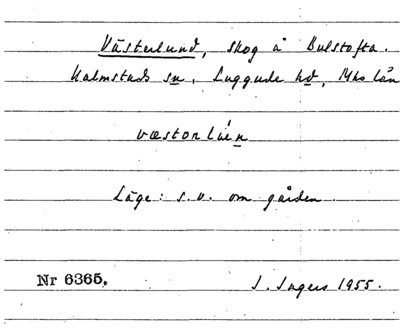 Västerlund, skog å Bulstofta.
Kalmstads sn, Luggude hd, Mhs län
væstorlúen
Läge: s.v. om gården.
Nr 6365.
I. Ingers 1955.